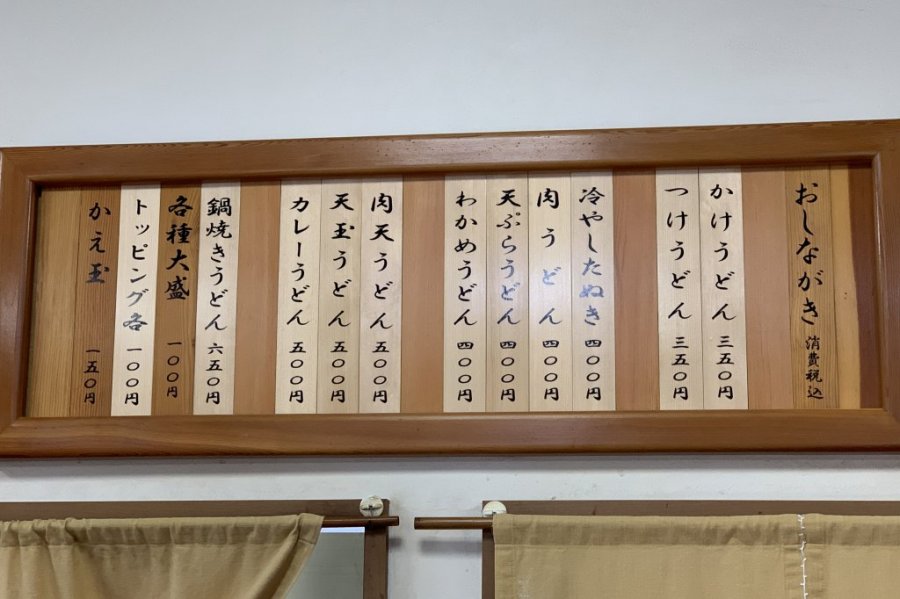 おしながき 消費税込
かけうどん 三五〇円
つけうどん 三五〇円
冷やしたぬき 四〇〇円
肉うどん 四〇〇円
天ぷらうどん 四〇〇円
わかめうどん 四〇〇円
肉天うどん 五〇〇円
天玉うどん 五〇〇円
カレーうどん 五〇〇円
鍋焼きうどん 六五〇円
各種大盛 一〇〇円
トッピング各 一〇〇円
かえ玉 一五〇円